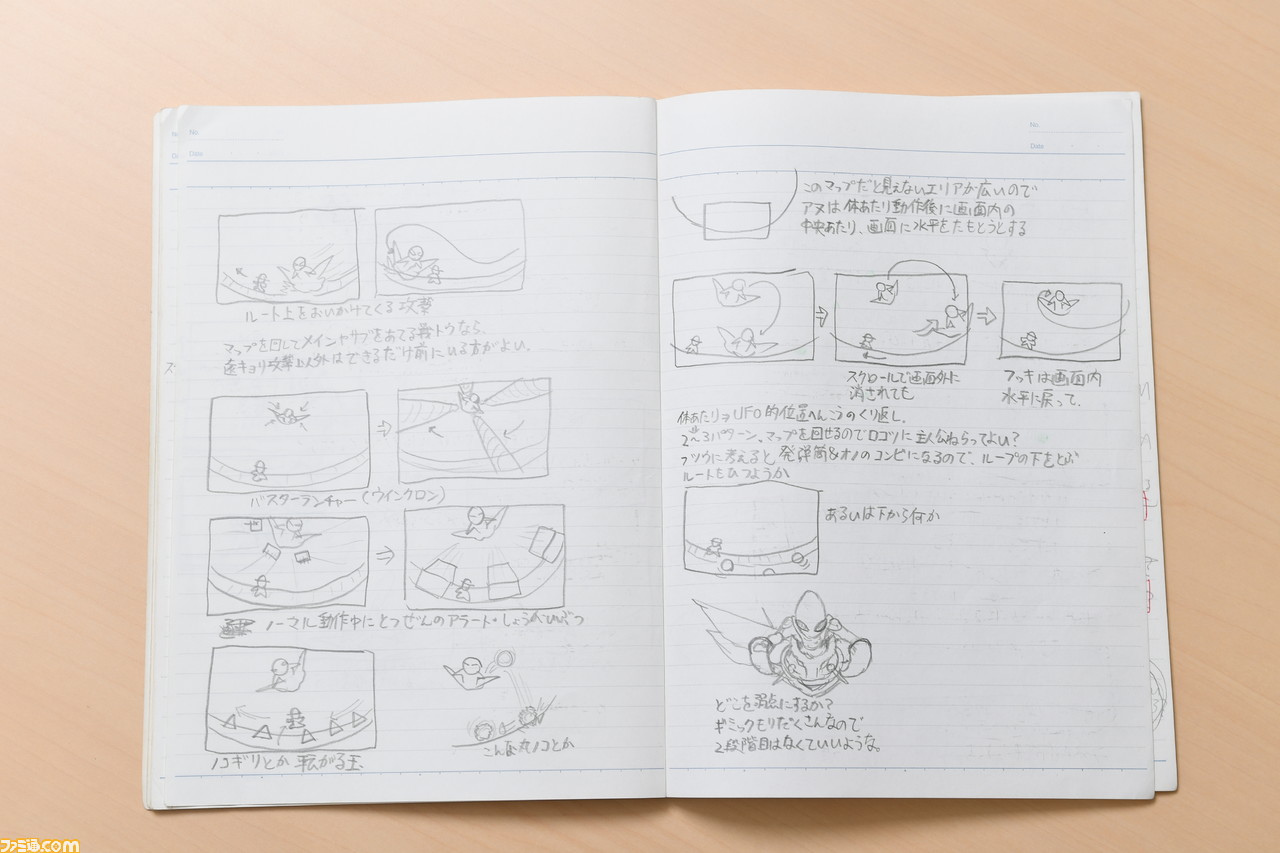 No.
Date
ルート上をおいかけてくる攻撃
マップを回してメインやサブをあてる戦トウなら、
遠キョリ攻撃以外はできるだけ前にいる方がよい。
バスターランチャー(ウインクロン)
ノーマル動作中にとつぜんのアラート・しょうがいぶつ
ノコギリとか転がる玉
こん丸ノコとか
No.
Date
このマップだと見えないエリアが広いので
アヌは体あたり動作後に画面内の
中央あたり、画面に水平をたもとうとする
スクロールで画面外に
消されても
フッキは画面内
水平に戻って、
体あたり→UFO的位置へんこうのくり返し。
2〜3パターン。マップを回せるのでロコツに主人公ねらってよい?
フツウに考えると発弾筒&オノのコンビになるので、ループの下をとぶ
ルートもひつようか
あるいは下から何か
どこを弱点にするか?
ギミックもりだくさんなので
2段階目はなくていいような。
ファミ通.com